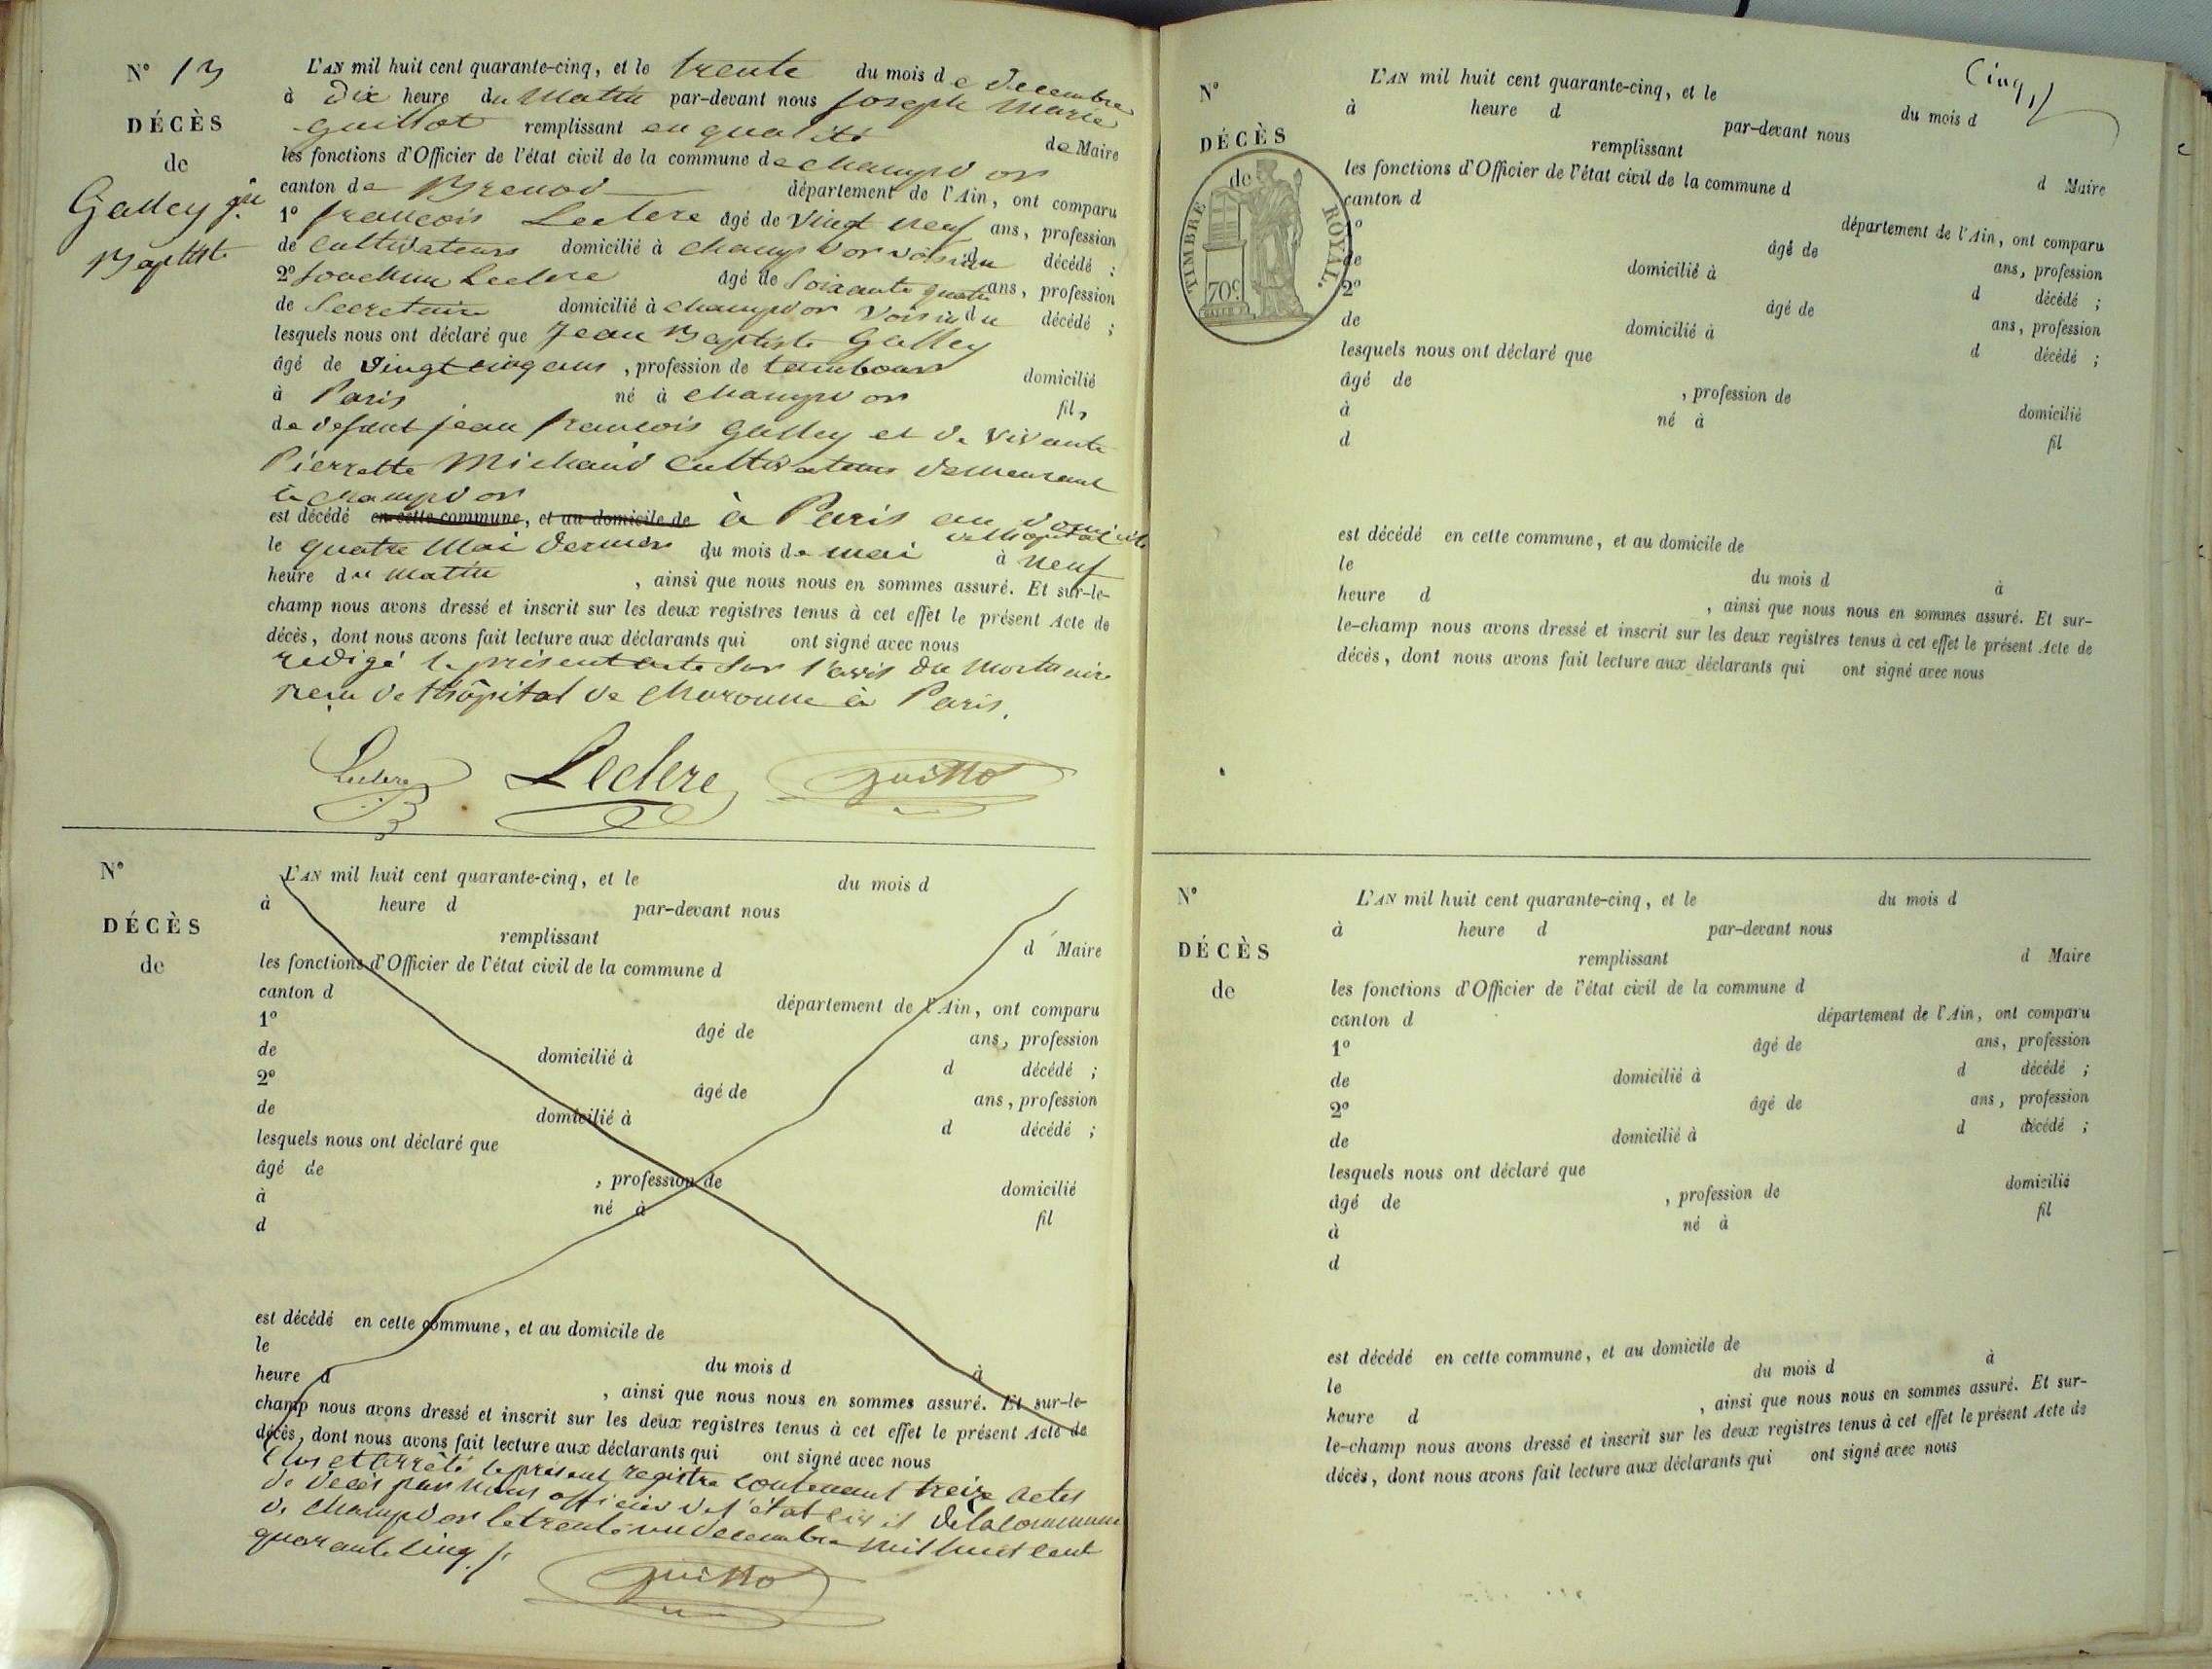 N° 13
DÉCÈS
de
Galley jn
Baptiste
L'AN mil huit cent quarante-cinq, et le trente du mois de decembre
à Dix heure du Matin par-devant nous joseph Marie
guillot remplissant en qualité de Maire
les fonctions d'Officier de l'état civil de la commune de champd or
canton de Brenod département de l'Ain, ont comparu
1° françois Leclere âgé de Vingt neuf ans, profession
de Cultivateurs domicilié à champ d or voisin du décédé ;
2° Joachim Leclere âgé de Soixante quatre ans, profession
de Secretaire domicilié à champd or voisin du décédé ;
lesquels nous ont déclaré que Jean Baptiste Galley
âgé de Vingt cinq ans, profession de tambour domicilié
à Paris né à champd or fils
de defunt jean francois Galley et de vivante
Pierrette Michaud Cultivateurs demeurant
à champd or
est décédé en cette commune, et au domicile de à Paris au
le quatre Mai dernier du mois de mai à neuf
heure du matin, ainsi que nous nous en sommes assuré. Et sur-le-
champ nous avons dressé et inscrit sur les deux registres tenus à cet effet le présent Acte de
décès, dont nous avons fait lecture aux déclarants qui ont signé avec nous
redigé le présent acte sur l'avis du mortuaire
reçu de thôpital de charonne à Paris.
Leclere Leclere guillo
N°
DÉCÈS
de
L'AN mil huit cent quarante-cinq, et le du mois d
à heure d par-devant nous
remplissant d Maire
les fonctions d'Officier de l'état civil de la commune d
canton d département de l'Ain, ont comparu
1° âgé de ans, profession
de domicilié à d décédé ;
2° âgé de ans, profession
de domicilié à d décédé ;
lesquels nous ont déclaré que
âgé de , profession de domicilié
à né à fil
d
est décédé en cette commune, et au domicile de
le du mois d à
heure d , ainsi que nous nous en sommes assuré. Et sur-le-
champ nous avons dressé et inscrit sur les deux registres tenus à cet effet le présent Acte de
décès, dont nous avons fait lecture aux déclarants qui ont signé avec nous
Clos et arrêté le présent registre contenant treize actes
de décès par nous officier de l'état civil de la commune
de champd or le trente un decembre mil huit cent
quarante cinq
guillo
Cinq
N°
DÉCÈS
de
TIMBRE ROYAL.
70c
L'AN mil huit cent quarante-cinq, et le du mois d
à heure d par-devant nous
remplissant d Maire
les fonctions d'Officier de l'état civil de la commune d
canton d département de l'Ain, ont comparu
1° âgé de ans, profession
de domicilié à d décédé ;
2° âgé de ans, profession
de domicilié à d décédé ;
lesquels nous ont déclaré que
âgé de , profession de domicilié
à né à fil
d
est décédé en cette commune, et au domicile de
le du mois d à
heure d , ainsi que nous nous en sommes assuré. Et sur-
le-champ nous avons dressé et inscrit sur les deux registres tenus à cet effet le présent Acte de
décès, dont nous avons fait lecture aux déclarants qui ont signé avec nous
N°
DÉCÈS
de
L'AN mil huit cent quarante-cinq, et le du mois d
à heure d par-devant nous
remplissant d Maire
les fonctions d'Officier de l'état civil de la commune d
canton d département de l'Ain, ont comparu
1° âgé de ans, profession
de domicilié à d décédé ;
2° âgé de ans, profession
de domicilié à d décédé ;
lesquels nous ont déclaré que
âgé de , profession de domicilié
à né à fil
d
est décédé en cette commune, et au domicile de
le du mois d à
heure d , ainsi que nous nous en sommes assuré. Et sur-
le-champ nous avons dressé et inscrit sur les deux registres tenus à cet effet le présent Acte de
décès, dont nous avons fait lecture aux déclarants qui ont signé avec nous